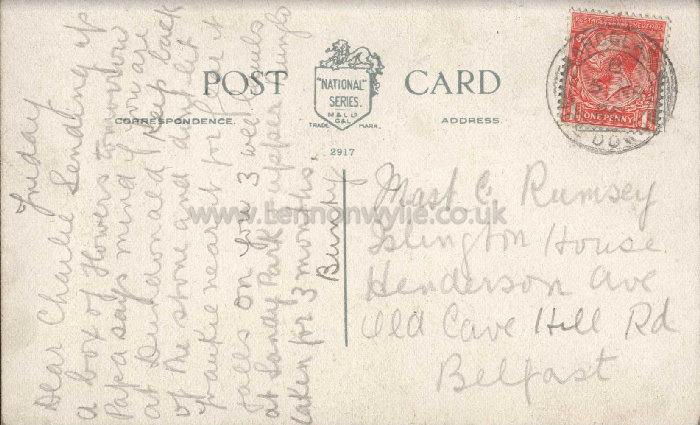 POST CARD
"NATIONAL"
SERIES.
M & L Ld
G & L
TRADE MARK.
CORRESPONDENCE.
ADDRESS.
2917
Friday
Dear Charlie Sending up
a box of flowers tomorrow
Papa says mind if you are
at Dundonald keep back
of the stone and dont let
Frankie near it for fear it
falls on you 3 wee
at Sandy Park upper
taken for 3 months.
Bunty
Mast C. Rumsey
Islington House
Henderson Ave
Old Cave Hill Rd
Belfast
POSTAGE REVENUE
ONE PENNY
DOWN
www.Lennonwylie.co.uk